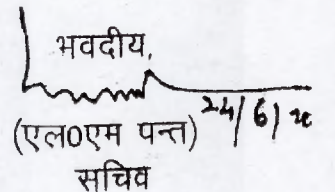 भवदीय,
24/6/
(एल0एम पन्त)
सचिव